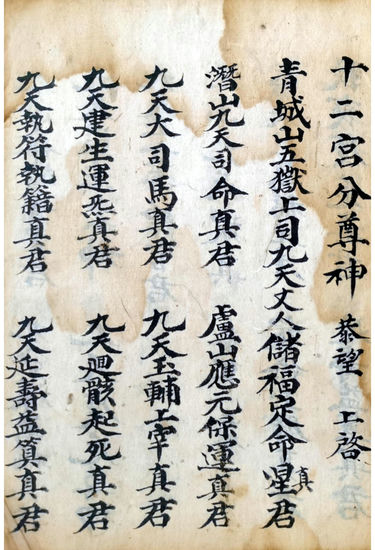 十二宮分尊神 恭望 上啓
青城山五獄上司九天丈人儲福定命真星君
潛山九天司命真君 盧山應元保運真君
九天大司馬真君 九天玉輔上宰真君
九天建生運炁真君 九天廻骸起死真君
九天執符執籍真君 九天延壽益算真君